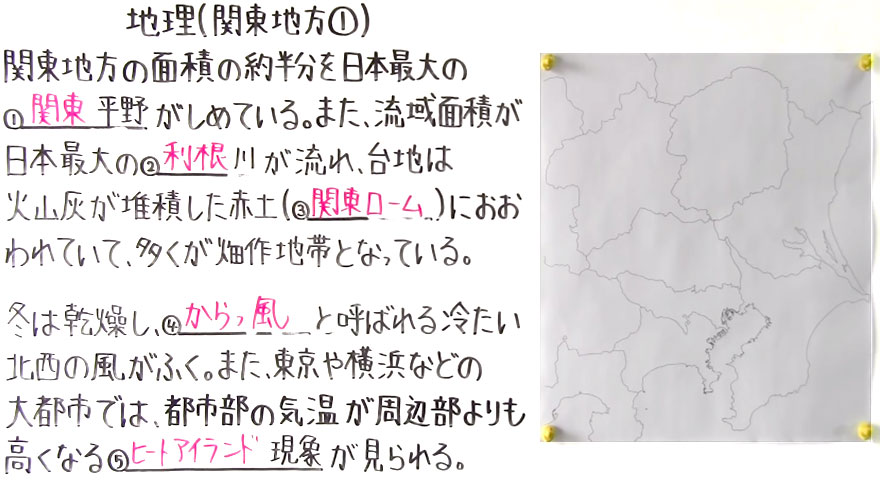 地理(関東地方①)
関東地方の面積の約半分を日本最大の
①関東平野がしめている。また、流域面積が
日本最大の②利根川が流れ、台地は
火山灰が堆積した赤土(③関東ローム)におお
われていて、多くが畑作地帯となっている。
冬は乾燥し、④からっ風と呼ばれる冷たい
北西の風がふく。また、東京や横浜などの
大都市では、都市部の気温が周辺部よりも
高くなる⑤ヒートアイランド現象が見られる。